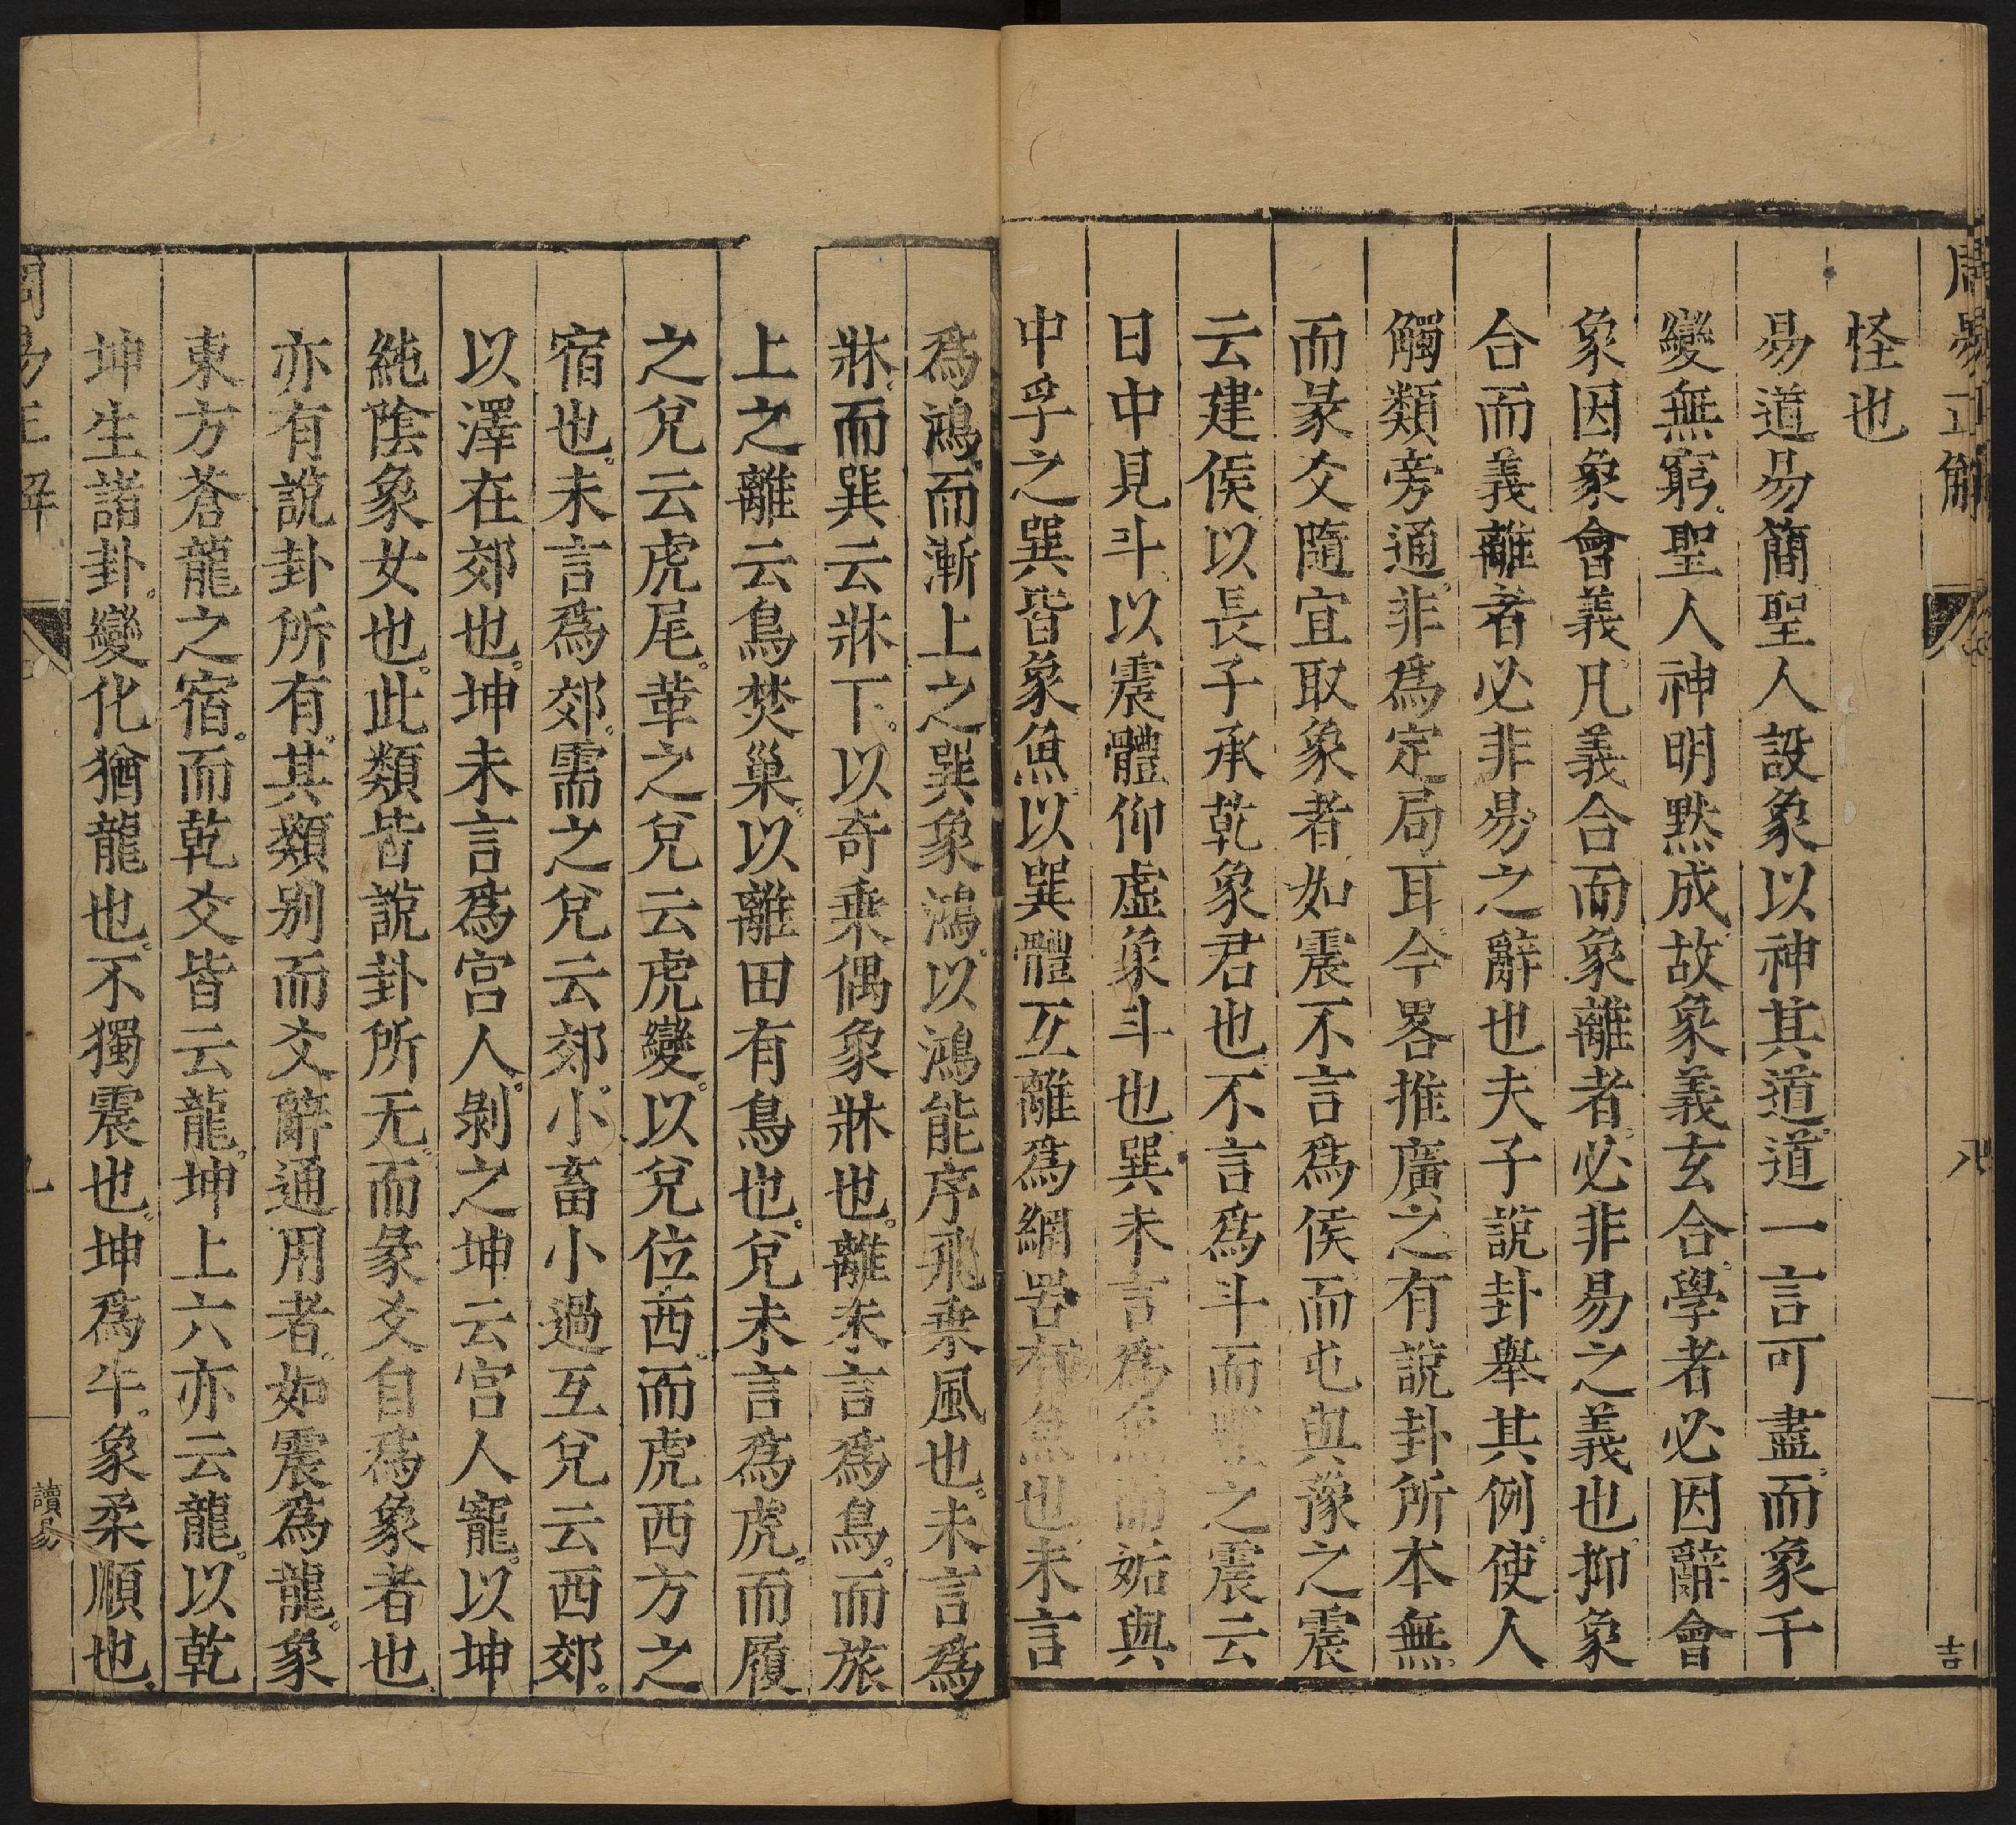 周易正解 八 吉
怪也
易道易簡聖人設象以神其道道一言可盡而象千
變無窮聖人神明黙成故象義玄合學者必因辭會
象因象會義凡義合而象離者必非易之義也抑象
合而義離者必非易之辭也夫子說卦舉其例使人
觸類旁通非爲定局耳今畧推廣之有說卦所本無
而彖爻隨宜取象者如震不言爲侯而屯與豫之震
云建侯以長子承乾象君也不言爲斗而豐之震云
日中見斗以震體仰虛象斗也巽未言爲魚而姤與
中孚之巽皆象魚以巽體互離爲網罟有魚也未言
爲鴻而漸上之巽象鴻以鴻能序飛乗風也未言爲
牀而巽云牀下以奇乘偶象牀也離未言爲鳥而旅
上之離云鳥焚巢以離田有鳥也兌未言爲虎而履
之兌云虎尾革之兌云虎變以兌位西而虎西方之
宿也未言爲郊需之兌云郊小畜小過互兌云西郊
以澤在郊也坤未言爲宮人剝之坤云宮人寵以坤
純陰象女也此類皆說卦所无而彖爻自爲象者也
亦有說卦所有其類別而爻辭通用者如震為龍象
東方蒼龍之宿而乾爻皆云龍坤上六亦云龍以乾
坤生諸卦變化猶龍也不獨震也坤爲牛象柔順也
周易正解 讀易